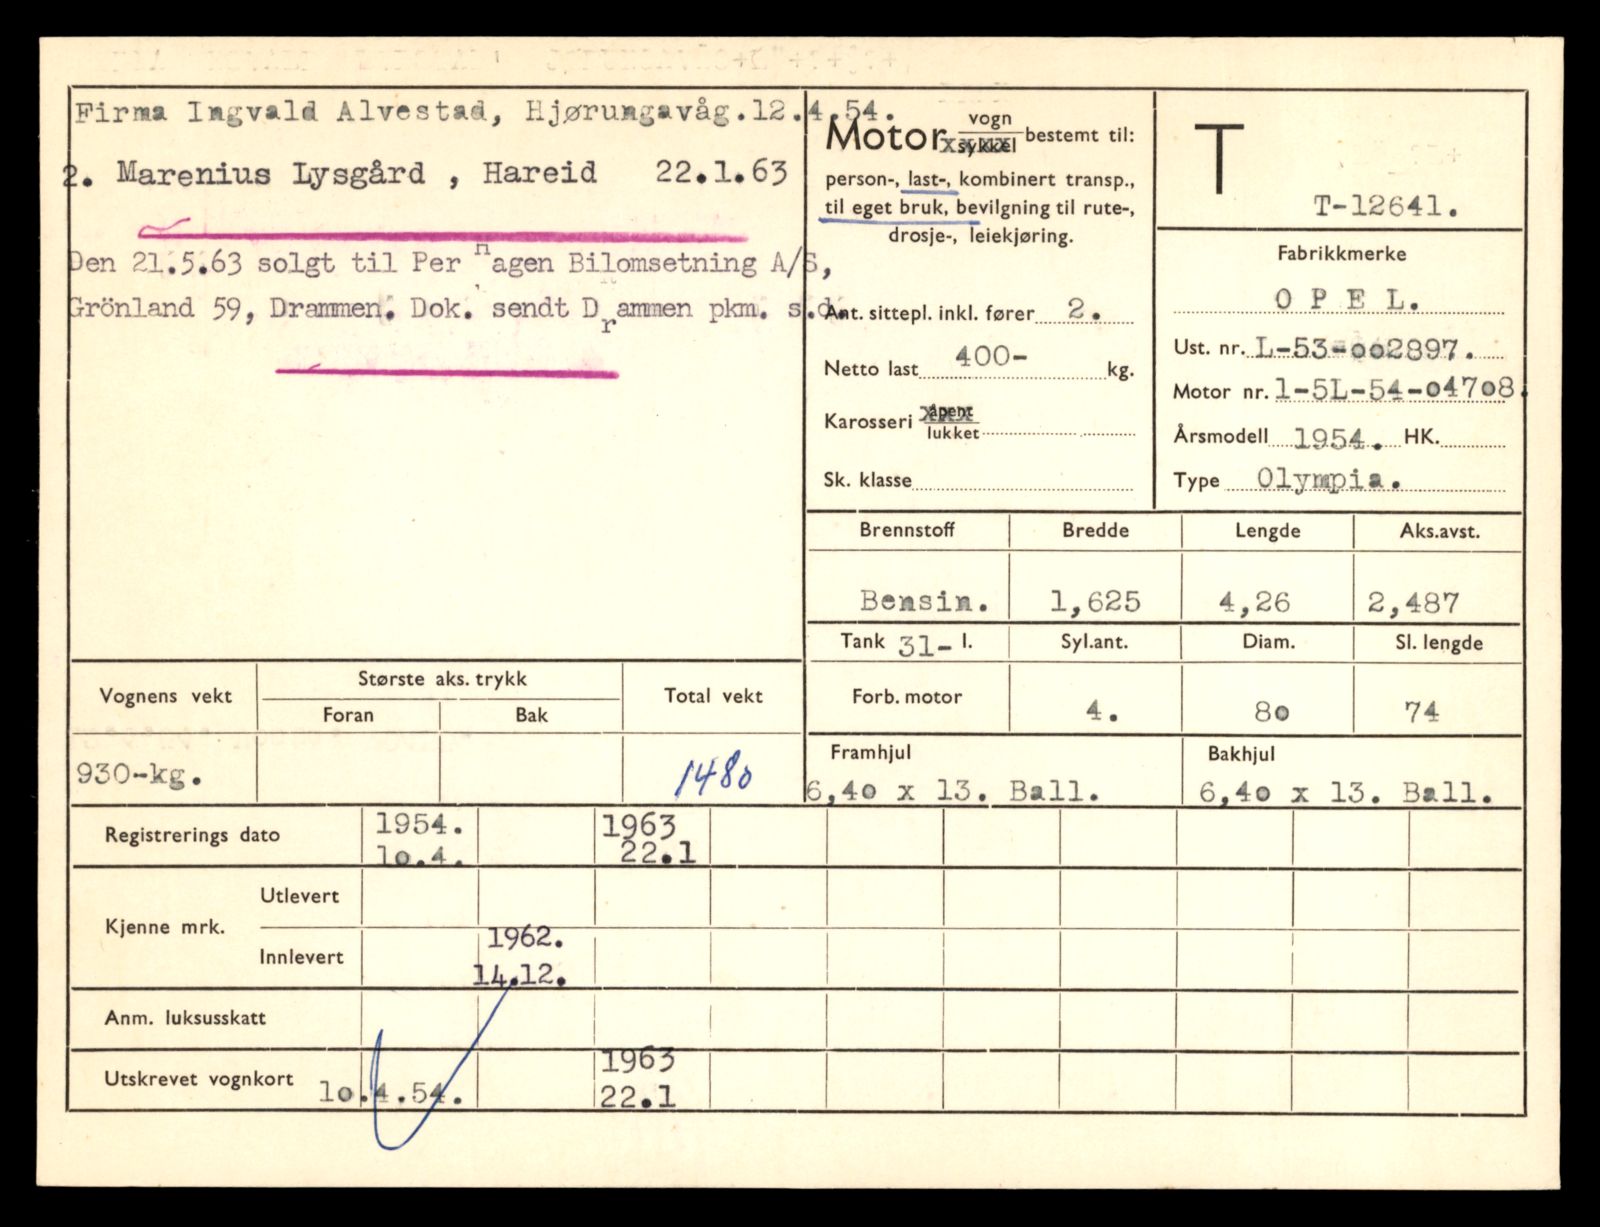 Firma Ingvald Alvestad, Hjørungavåg.12.4.54.
2. Marenius Lysgård , Hareid 22.1.63
Den 21.5.63 solgt til Per Hagen Bilomsetning A/S,
Grönland 59, Drammen. Dok. sendt Drammen pkm. s.d.
Motor vogn
sykkel bestemt til:
person-, last-, kombinert transp.,
til eget bruk, bevilgning til rute-,
drosje-, leiekjøring.
Ant. sittepl. inkl. fører 2.
Netto last 400- kg.
Karosseri åpent
lukket
Sk. klasse
T
T-12641.
Fabrikkmerke
OPEL.
Ust. nr. L-53-002897.
Motor nr. 1-5L-54-04708.
Årsmodell 1954. HK.
Type Olympia.
Brennstoff Bredde Lengde Aks.avst.
Bensin. 1,625 4,26 2,487
Tank 31- l. Syl.ant. Diam. Sl. lengde
Forb. motor 4. 80 74
Framhjul Bakhjul
6,40 x 13. Ball. 6,40 x 13. Ball.
Vognens vekt Største aks. trykk Total vekt
Foran Bak
930-kg. 1480
Registrerings dato 1954. 1963
10.4. 22.1
Kjenne mrk. Utlevert
Innlevert 1962.
14.12.
Anm. luksusskatt
Utskrevet vognkort 10.4.54. 1963
22.1